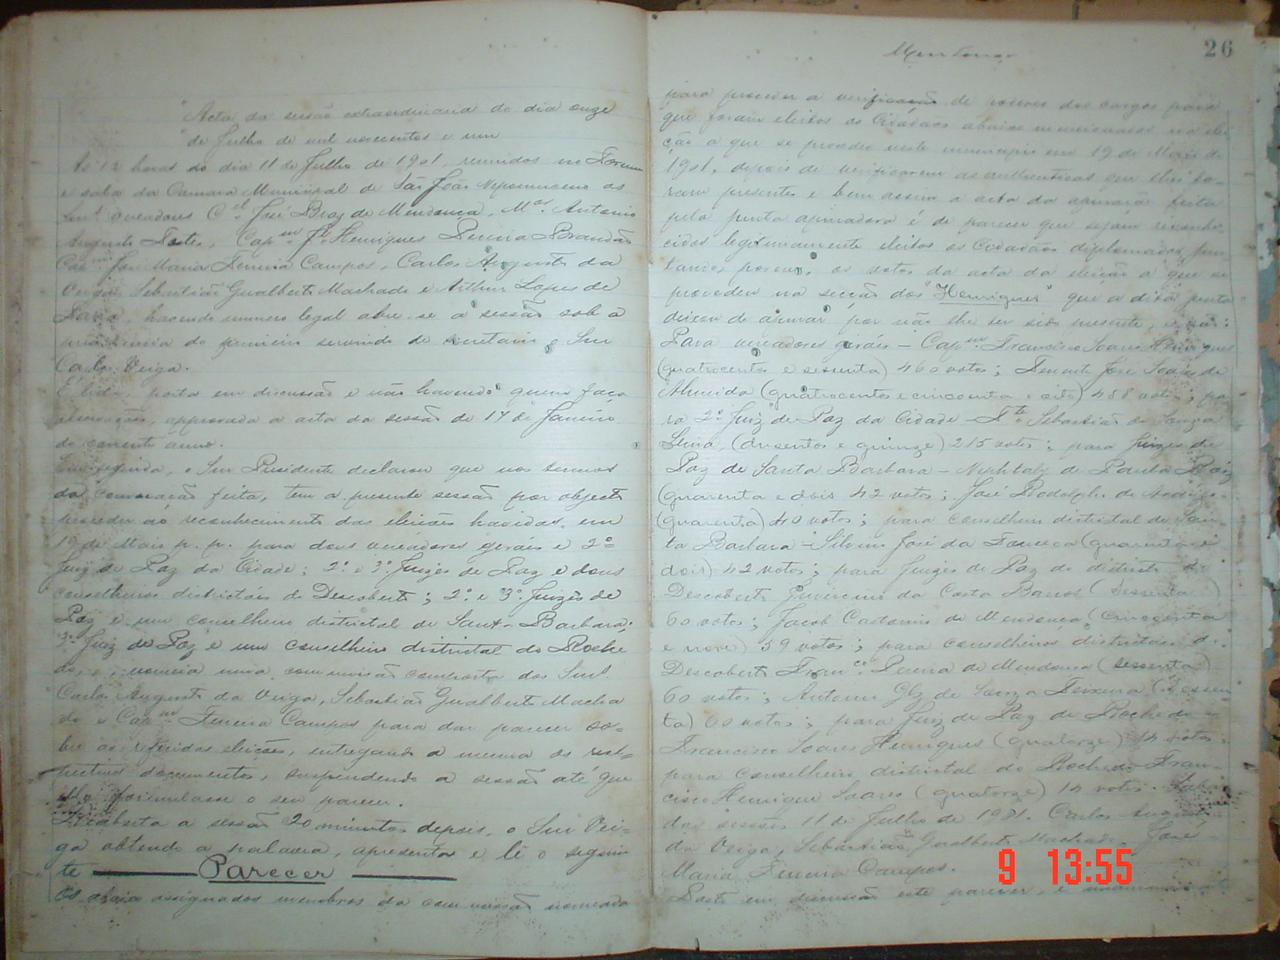 Acta da sessão extraordinaria do dia onze
de Julho de mil novecentos e um
As 12 horas do dia 11 de Julho de 1901, reunidos no Forum
e sala da Camara Municipal de São João Nepomuceno os
Snrs. vereadores Cel. José Braz de Mendonça, Antonio
Augusto Capm. Henriques Pereira Brandão
Capm. José Maria Ferreira Campos, Carlos Augusto da
Veiga, Sebastião Gualberto Machado e Arthur Lopes de
havendo numero legal abre-se a sessão sob a
presidencia do primeiro servindo de secretario o Snr
Carlos Veiga.
É lida, posta em discussão e não havendo quem faça
approvada a acta da sessão de 14 de Janeiro
do corrente anno.
Em seguida, o Snr Presidente declarou que nos termos
da convocação feita, tem a presente sessão por objecto
proceder ao reconhecimento das eleições havidas em
19 de Maio p. p. para dous vereadores geraes e 2º
Juiz de Paz da Cidade; 2º e 3º Juizes de Paz e dous
conselheiros districtaes de Descoberto; 2º e 3º Juizes de
Paz e um conselheiro districtal de Santa Barbara;
3º Juiz de Paz e um conselheiro districtal do Roche
do, e nomeia uma commissão composta dos Snrs.
Carlos Augusto da Veiga, Sebastião Gualberto Macha
do e Capm Ferreira Campos para dar parecer so-
bre as referidas eleições, entregando a mesma os res-
pectivos documentos, suspendendo a sessão até que
ella formulasse o seu parecer.
Reaberta a sessão 20 minutos depois, o Snr Vei-
ga obtendo a palavra, apresenta e lê o seguin
te Parecer
Os abaixo assignados membros da commissão nomeada
26
Mendonça
para proceder a verificação de poderes dos cargos para
que foram eleitos os Cidadãos abaixo mencionados na elei
ção a que se procedeu neste municipio em 19 de Maio de
1901, depois de verificarem as authenticas que lhes fo-
ram presentes e bem assim a acta da apuração feita
pela junta apuradora é de parecer que sejam reconhe
cidos legitimamente eleitos os Cidadãos diplomados, jun
tando, porem, os votos da acta da eleição a que se
procedeu na secção dos "Henriques" que a dita junta
deixou de apurar por não lhe ser sido presente, e são:
Para vereadores geraes - Capm Francisco Soares Henriques
(quatrocentos e sessenta) 460 votos; Tenente José Soares de
Almeida (quatrocentos e cincoenta e oito) 458 votos; pa
ra 2º Juiz de Paz da Cidade - Sebastião de Souza
Lima, (dusentos e quinze) 215 votos; para Juizes de
Paz de Santa Barbara - Nephtaly de Paula
(quarenta e dois 42 votos; José Rodolpho de
(quarenta) 40 votos; para conselheiro districtal de San-
ta Barbara - Silvino José da Fonseca (quarenta e
dois) 42 votos; para Juizes de Paz do districto de
Descoberto da Costa Barros (sessenta)
60 votos; Jacob de Mendonça (cincoenta
e nove) 59 votos; para conselheiros districtaes de
Descoberto Franco. Pereira de Mendonça (sessenta)
60 votos; Antonio de Souza Teixeira (sessen-
ta) 60 votos; para Juiz de Paz de Rochedo
Francisco Soares Henriques (quatorze) 14 votos.
para conselheiro districtal do Rochedo Fran-
cisco Henrique Soares (quatorze) 14 votos. Sala
das sessões 11 de Julho de 1901. Carlos Augusto
da Veiga, Sebastião Gualberto Machado. José
Maria Ferreira Campos.
Posto em discussão este parecer, é
9 13:55